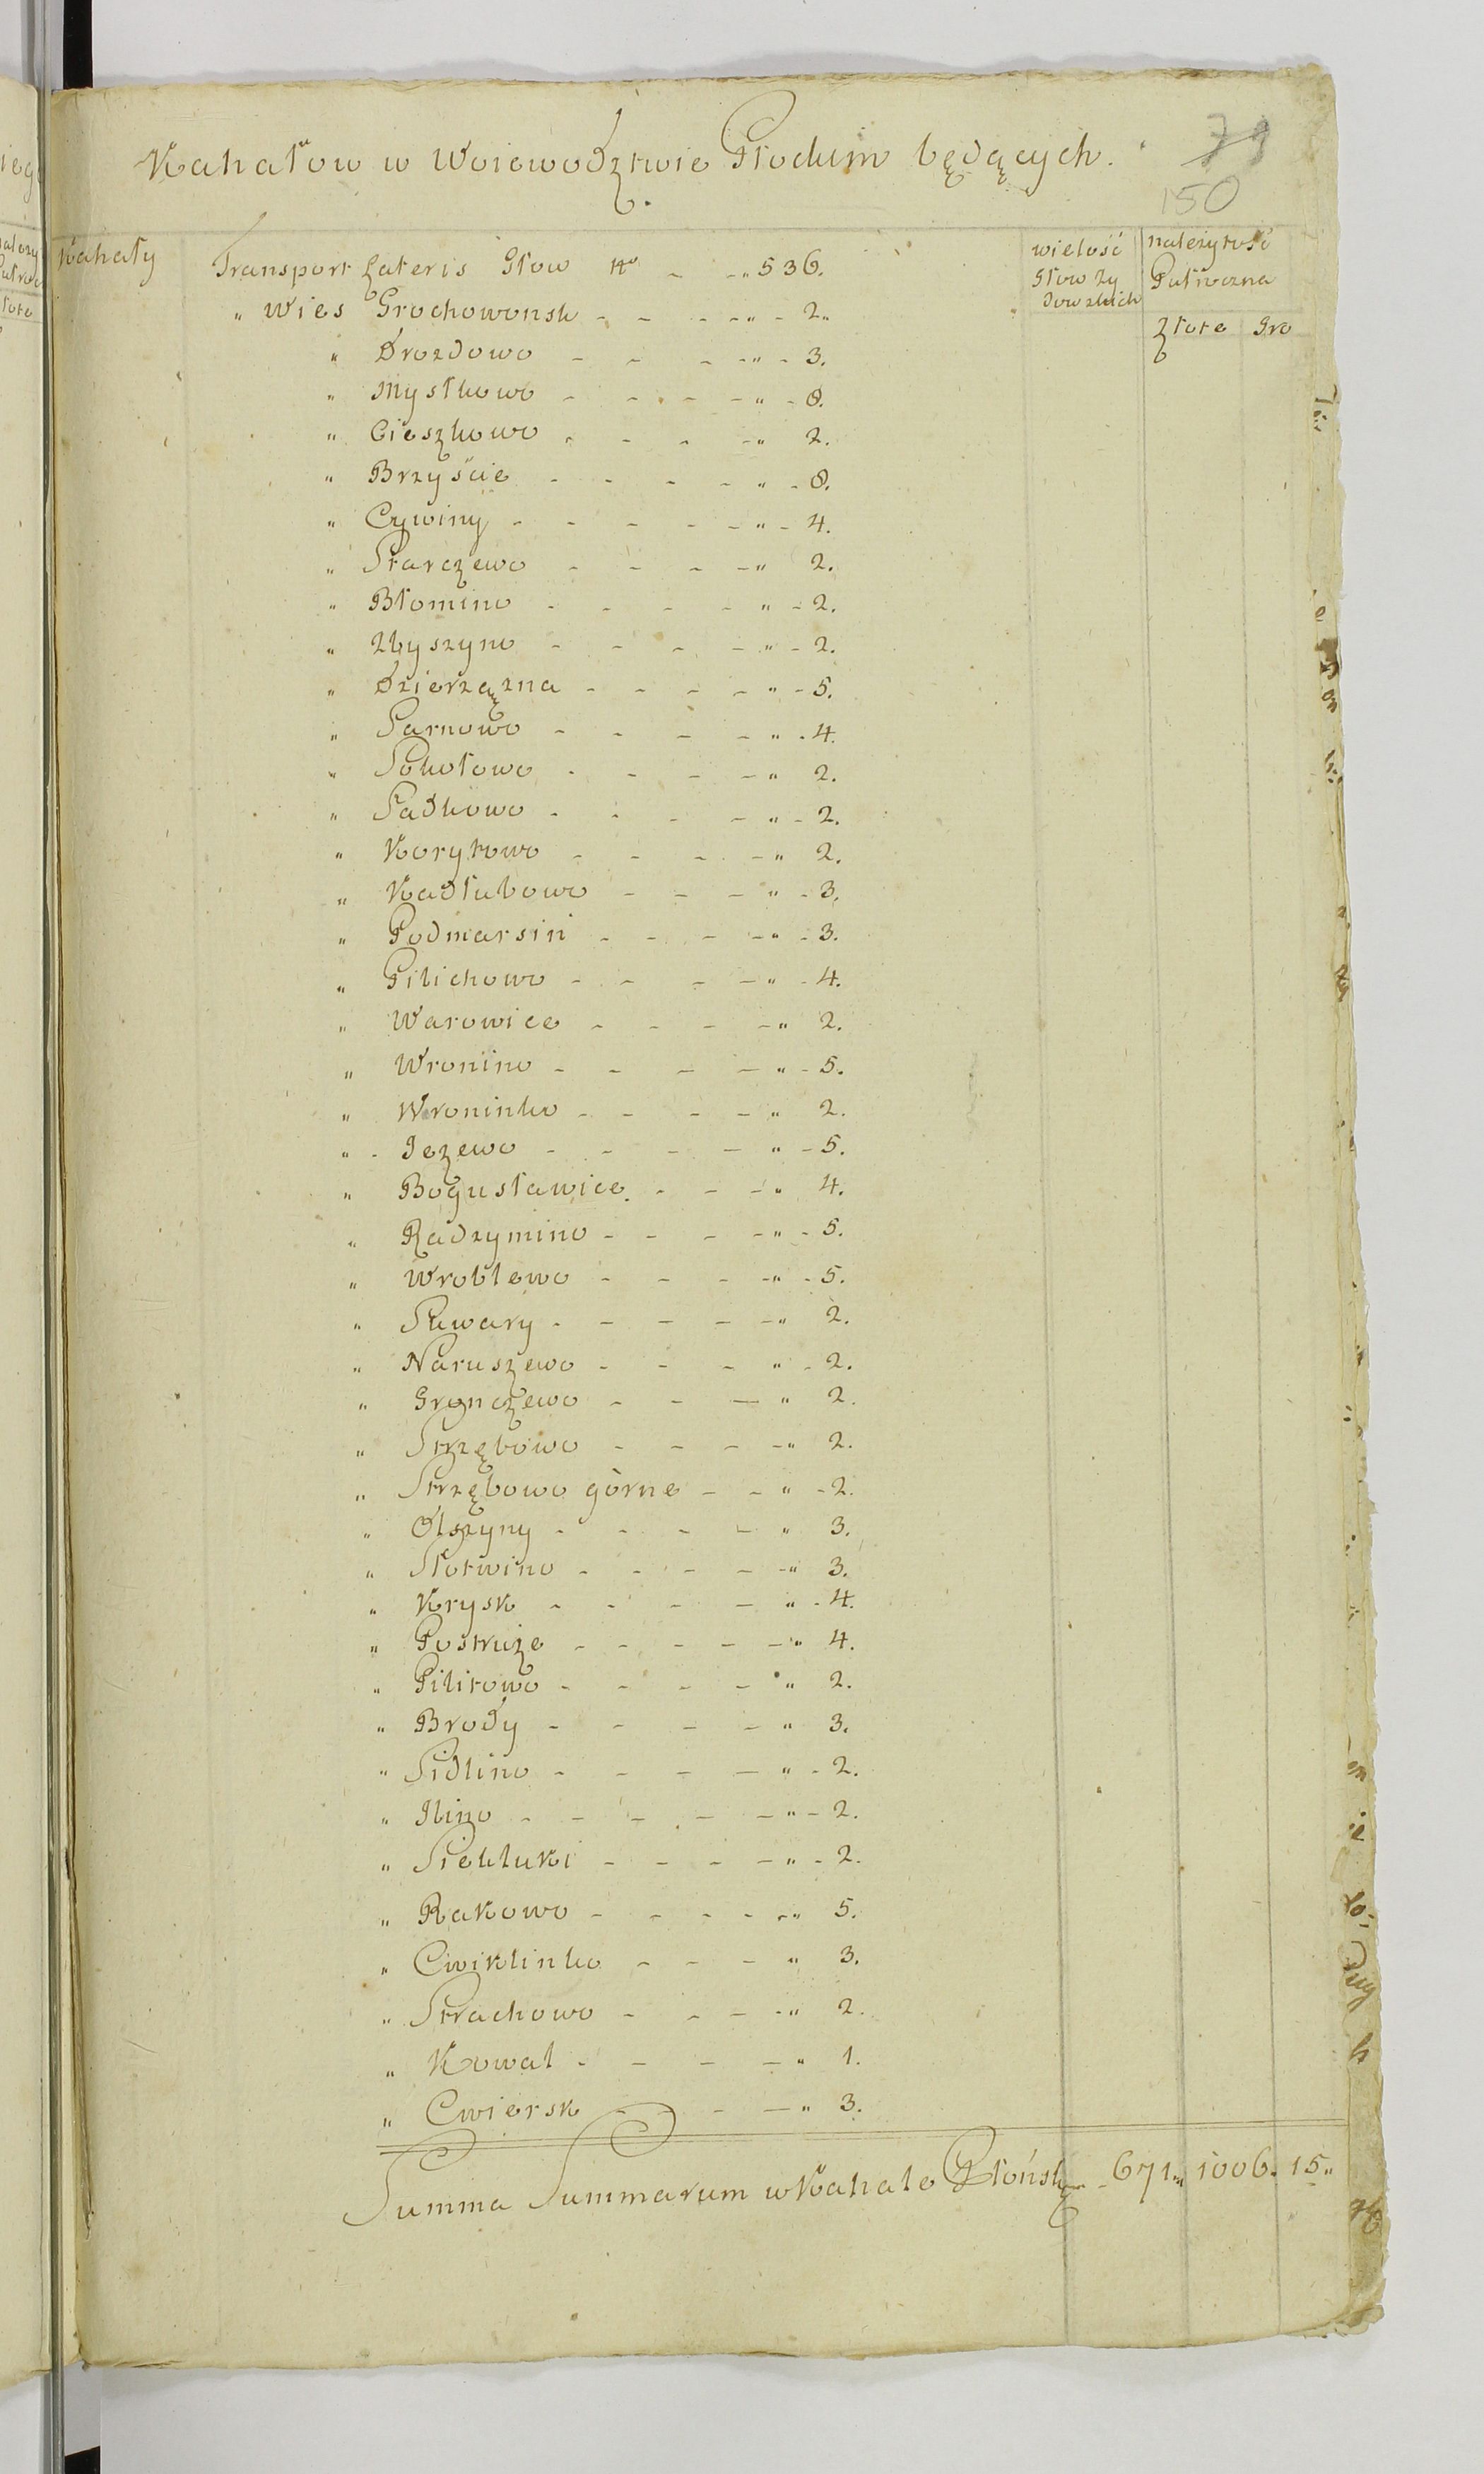 Kahałow w Woiewodztwie Płockim będących.
79
150
Kahały
wielość
Głow Ży
dowskich
należytość
Pułroczna
Złote Gro
Transport Lateris Głow No - - „ 536.
„ Wies Grochowonsk - - - - „ - 2„
„ Drozdowo - - - - „ - 3.
„ Mystkowo - - - - „ - 8.
„ Cieszkowo - - - - „ 2.
„ Brzyście - - - - „ - 8.
„ Cywiny - - - - - „ - 4.
„ Starczewo - - - - „ 2.
„ Błomino - - - - „ - 2.
„ Zbyszyno - - - - „ - 2.
„ Dzierzązna - - - - „ - 5.
„ Sarnowo - - - - „ - 4.
„ Sokołowo - - - - „ 2.
„ Sadkowo - - - - „ - 2.
„ Korytowo - - - - „ 2.
„ Kadłubowo - - - „ - 3.
„ Podmarsin - - - - „ - 3.
„ Pilichowo - - - - „ - 4.
„ Warowice - - - - „ 2.
„ Wronino - - - - „ - 5.
„ Wroninko - - - - „ 2.
„ - Jeżewo - - - - „ - 5.
„ Bogusławice - - - „ 4.
„ Radzymino - - - - „ - 5.
„ Wroblewo - - - - „ - 5.
„ Skwary - - - - - „ 2.
„ Naruszewo - - - „ - 2.
„ Gronczewo - - - „ 2.
„ Strzębowo - - - - „ 2.
„ Strzębowo górne - - „ - 2.
„ Olszyny - - - - „ 3.
„ Słotwino - - - - - „ 3.
„ Krysk - - - - „ - 4.
„ Postruże - - - - - „ 4.
„ Pilitowo - - - - „ 2.
„ Brody - - - - „ 3.
„ Sidlino - - - - „ - 2.
„ Ilino - - - - - - „ - 2.
„ Siekluki - - - - „ - 2.
„ Rakowo - - - - - „ 5.
„ Cwiklinko - - - „ 3.
„ Strachowo - - - - „ 2.
„ Kowal - - - - „ 1.
„ Cwiersk - - - - „ 3.
Summa Summarum w Kahale Płońsk - 671„ 1006. 15„